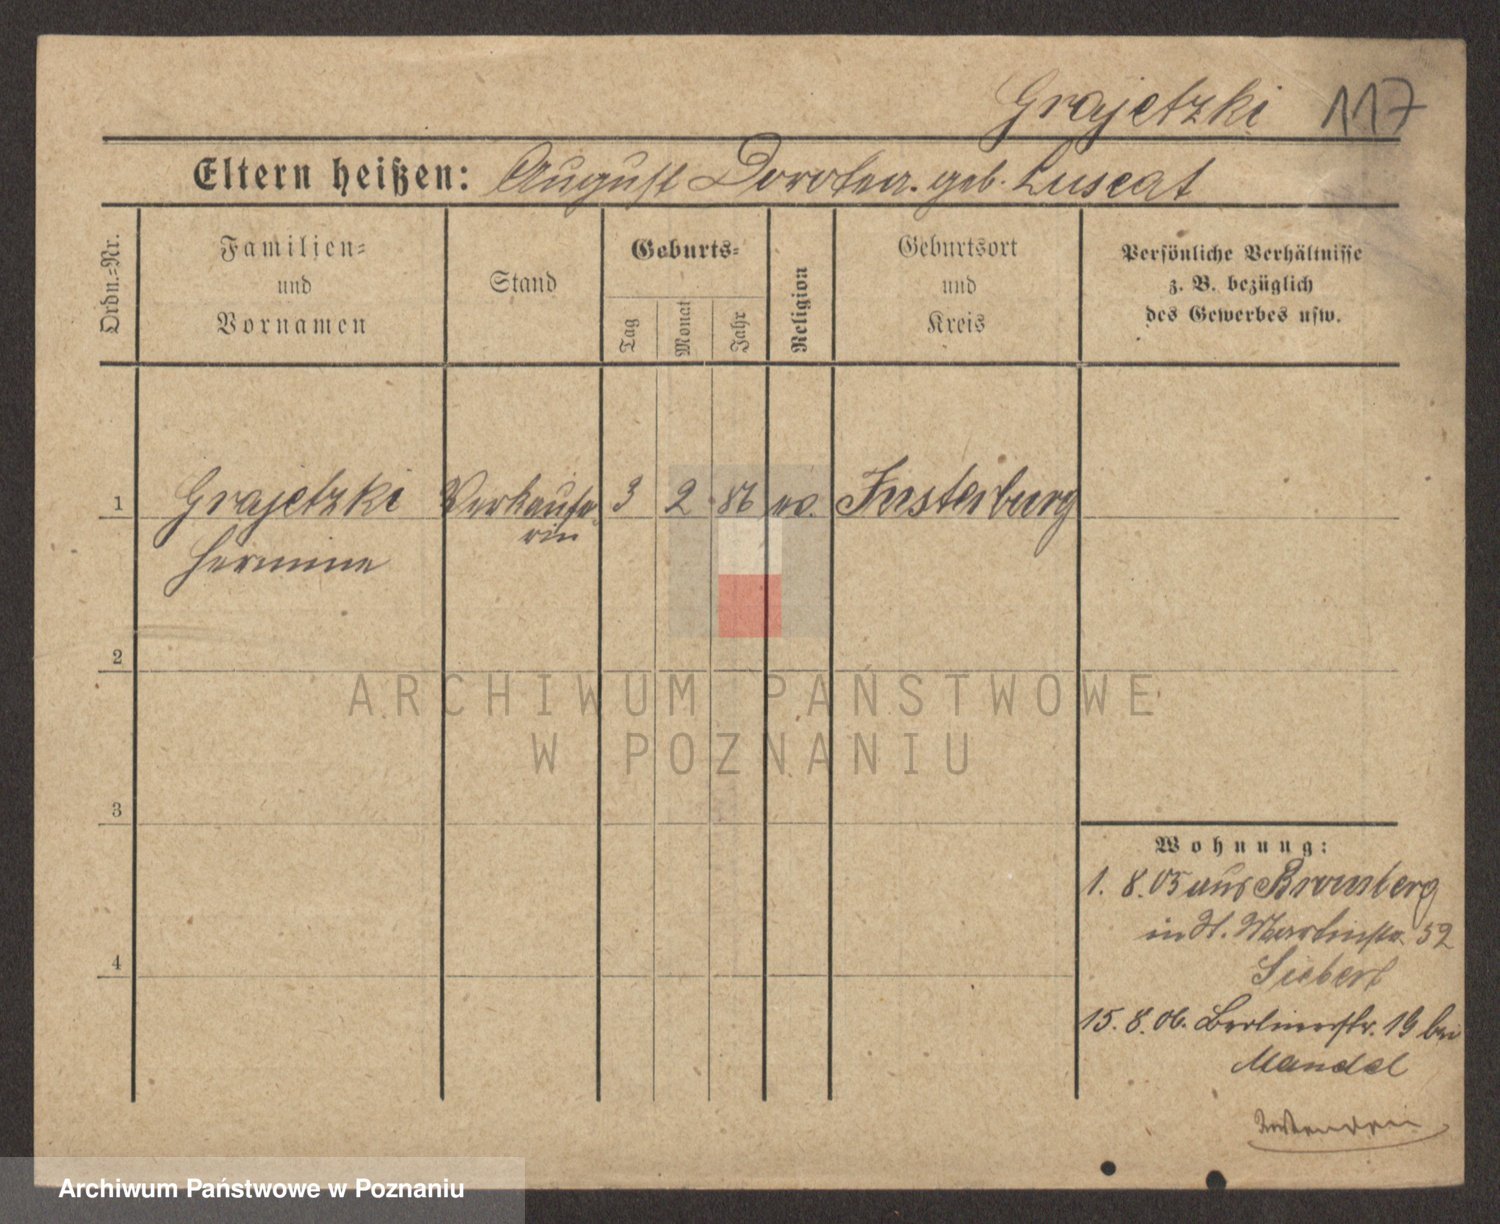 Grajetzki 117
Eltern heißen: August Dorothea. geb. Luscat
Ordn.=Nr.
Familien=
und
Vornamen
Stand
Geburts=
Tag
Monat
Jahr
Religion
Geburtsort
und
Kreis
Persönliche Verhältnisse
z. B. bezüglich
des Gewerbes usw.
1 Grajetzki Verkäufe- 3 2 86 ev. Insterburg
rin
Hermine
2
ARCHIWUM PAŃSTWOWE
W POZNANIU
3
Wohnung:
1. 8. 05 aus Bromberg
in St. Martinstr. 52
Siebert
4
15. 8. 06. Berlinerstr. 19 bei
Mandel
Archiwum Państwowe w Poznaniu